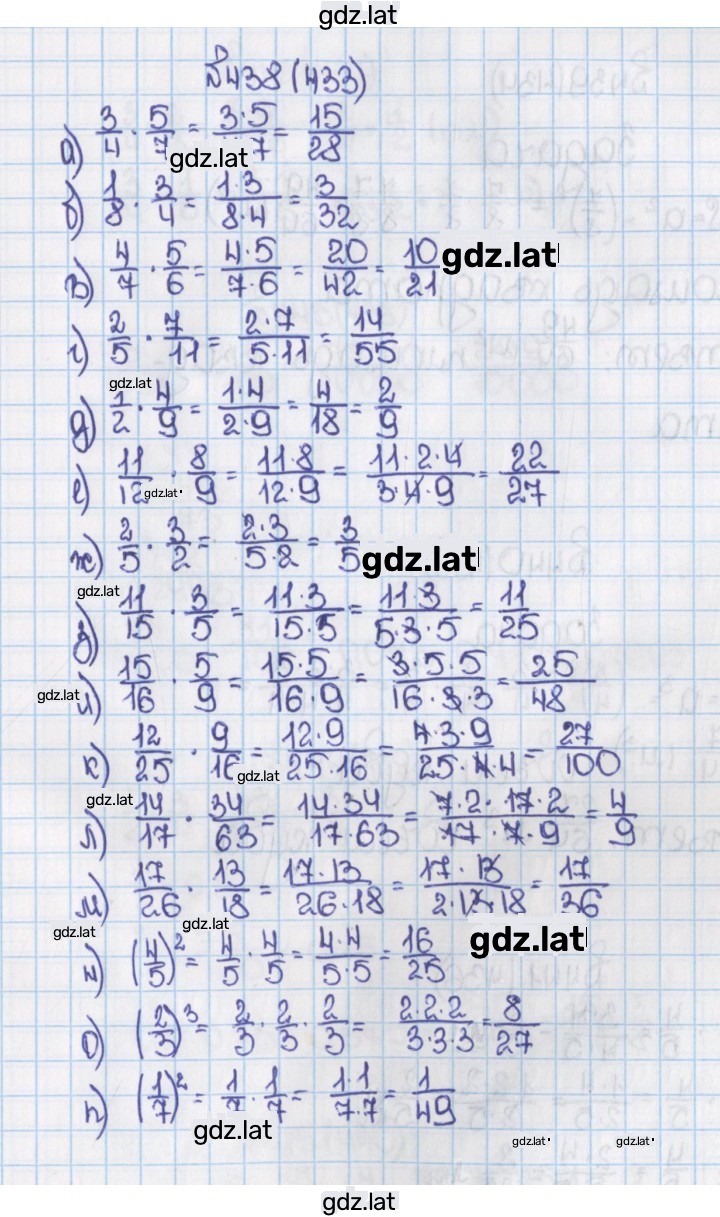 gdz.lat
№438 (433)
а) 3/4 · 5/7 = 3·5/ 7 = 15/28
gdz.lat
б) 1/8 · 3/4 = 1·3/8·4 = 3/32
в) 4/7 · 5/6 = 4·5/7·6 = 20/42 = 10/21
gdz.lat
г) 2/5 · 7/11 = 2·7/5·11 = 14/55
gdz.lat
д) 1/2 · 4/9 = 1·4/2·9 = 4/18 = 2/9
е) 11/12 · 8/9 = 11·8/12·9 = 11·2·4/3·4·9 = 22/27
gdz.lat
ж) 2/5 · 3/2 = 2·3/5·2 = 3/5
gdz.lat
gdz.lat
з) 11/15 · 3/5 = 11·3/15·5 = 11·3/5·3·5 = 11/25
и) 15/16 · 5/9 = 15·5/16·9 = 3·5·5/16·3·3 = 25/48
gdz.lat
к) 12/25 · 9/16 = 12·9/25·16 = 4·3·9/25·4·4 = 27/100
gdz.lat
gdz.lat
л) 14/17 · 34/63 = 14·34/17·63 = 7·2·17·2/17·7·9 = 4/9
м) 17/26 · 13/18 = 17·13/26·18 = 17·13/2·13·18 = 17/36
gdz.lat
gdz.lat
gdz.lat
н) (4/5)² = 4/5 · 4/5 = 4·4/5·5 = 16/25
о) (2/3)³ = 2/3 · 2/3 · 2/3 = 2·2·2/3·3·3 = 8/27
п) (1/7)² = 1/7 · 1/7 = 1·1/7·7 = 1/49
gdz.lat
gdz.lat
gdz.lat
gdz.lat